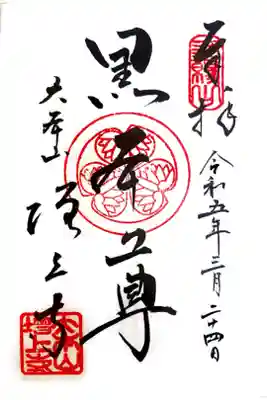 奉拝
令和五年三月二十四日
黒本尊
大本山
増上寺